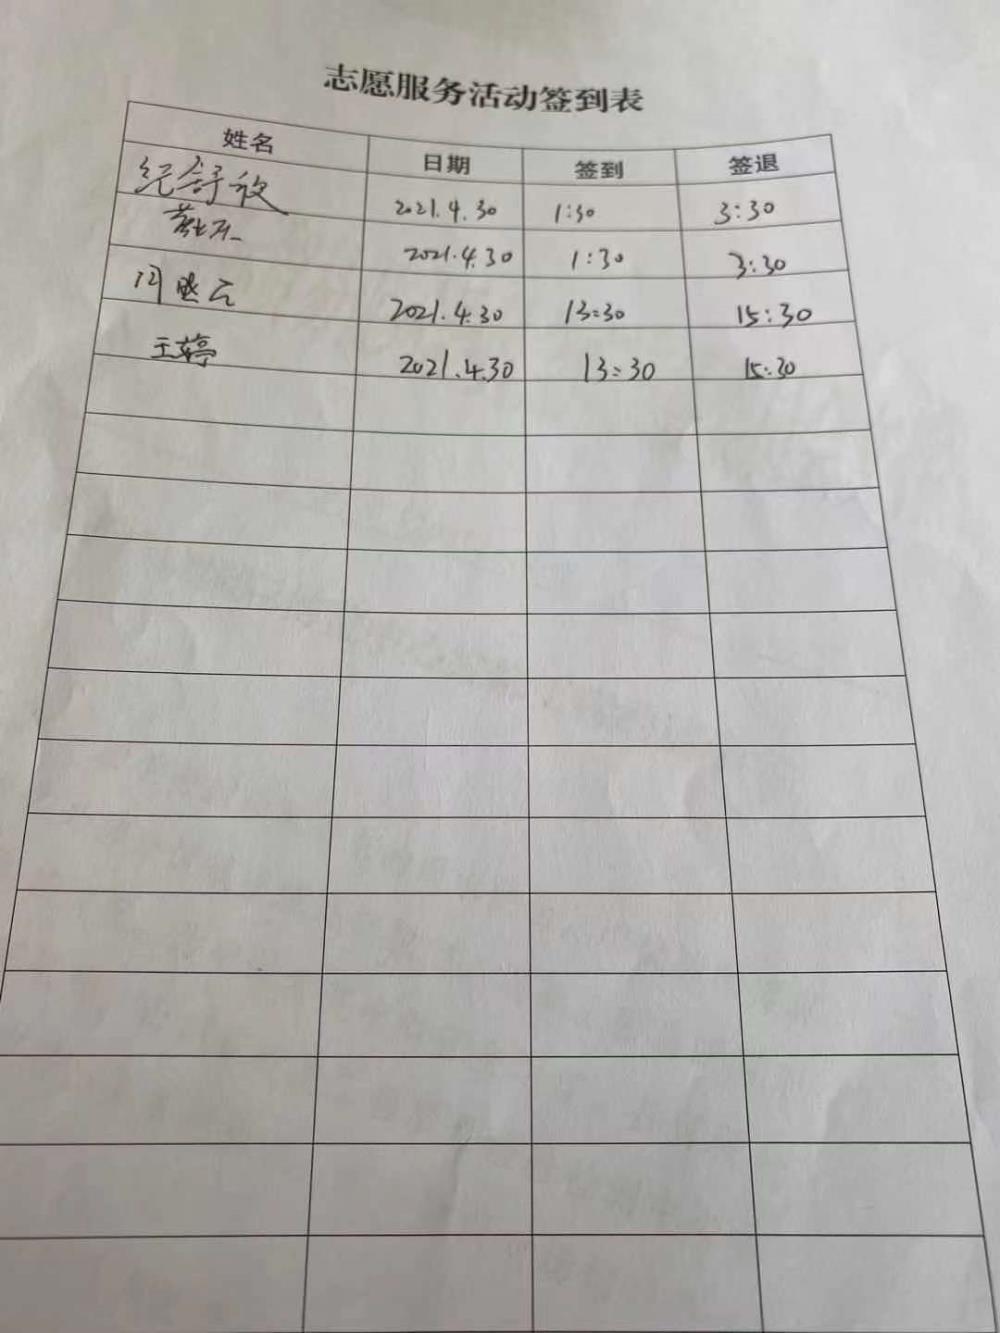 志愿服务活动签到表
姓名 日期 签到 签退
纪舒 2021.4.30 1:30 3:30
2021.4.30 1:30 3:30
闫 云 2021.4.30 13:30 15:30
王婷 2021.4.30 13:30 15:30